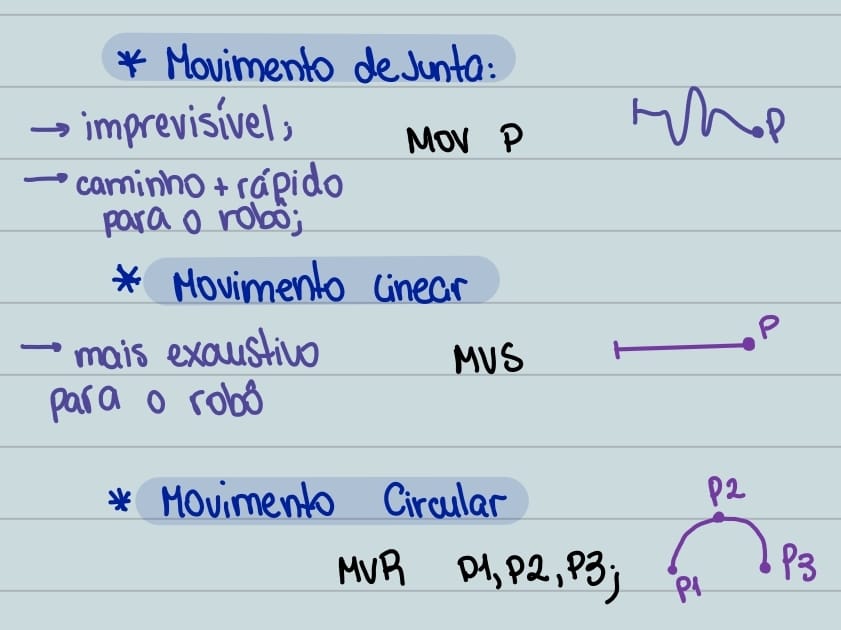 * Movimento de Junta:
→ imprevisível;
MOV P
P
→ caminho + rápido
para o robô;
* Movimento Linear
→ mais exaustivo
para o robô
MVS
P
* Movimento Circular
MVR P1, P2, P3;
P2
P1
P3